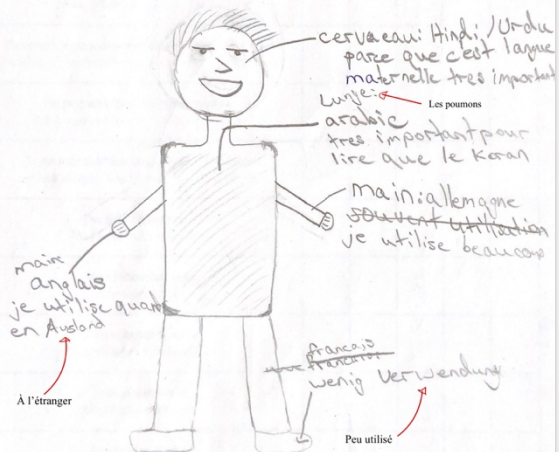 cerveau: Hindi/Urdu
parce que c'est langue
maternelle tres important
Lunge:
Les poumons
arabic
tres important pour
lire que le Koran
main: allemagne
souvent utilisation
je utilise beaucoup
main
anglais
je utilise quand
en Ausland
À l'étranger
francais
wenig Verwendung
Peu utilisé